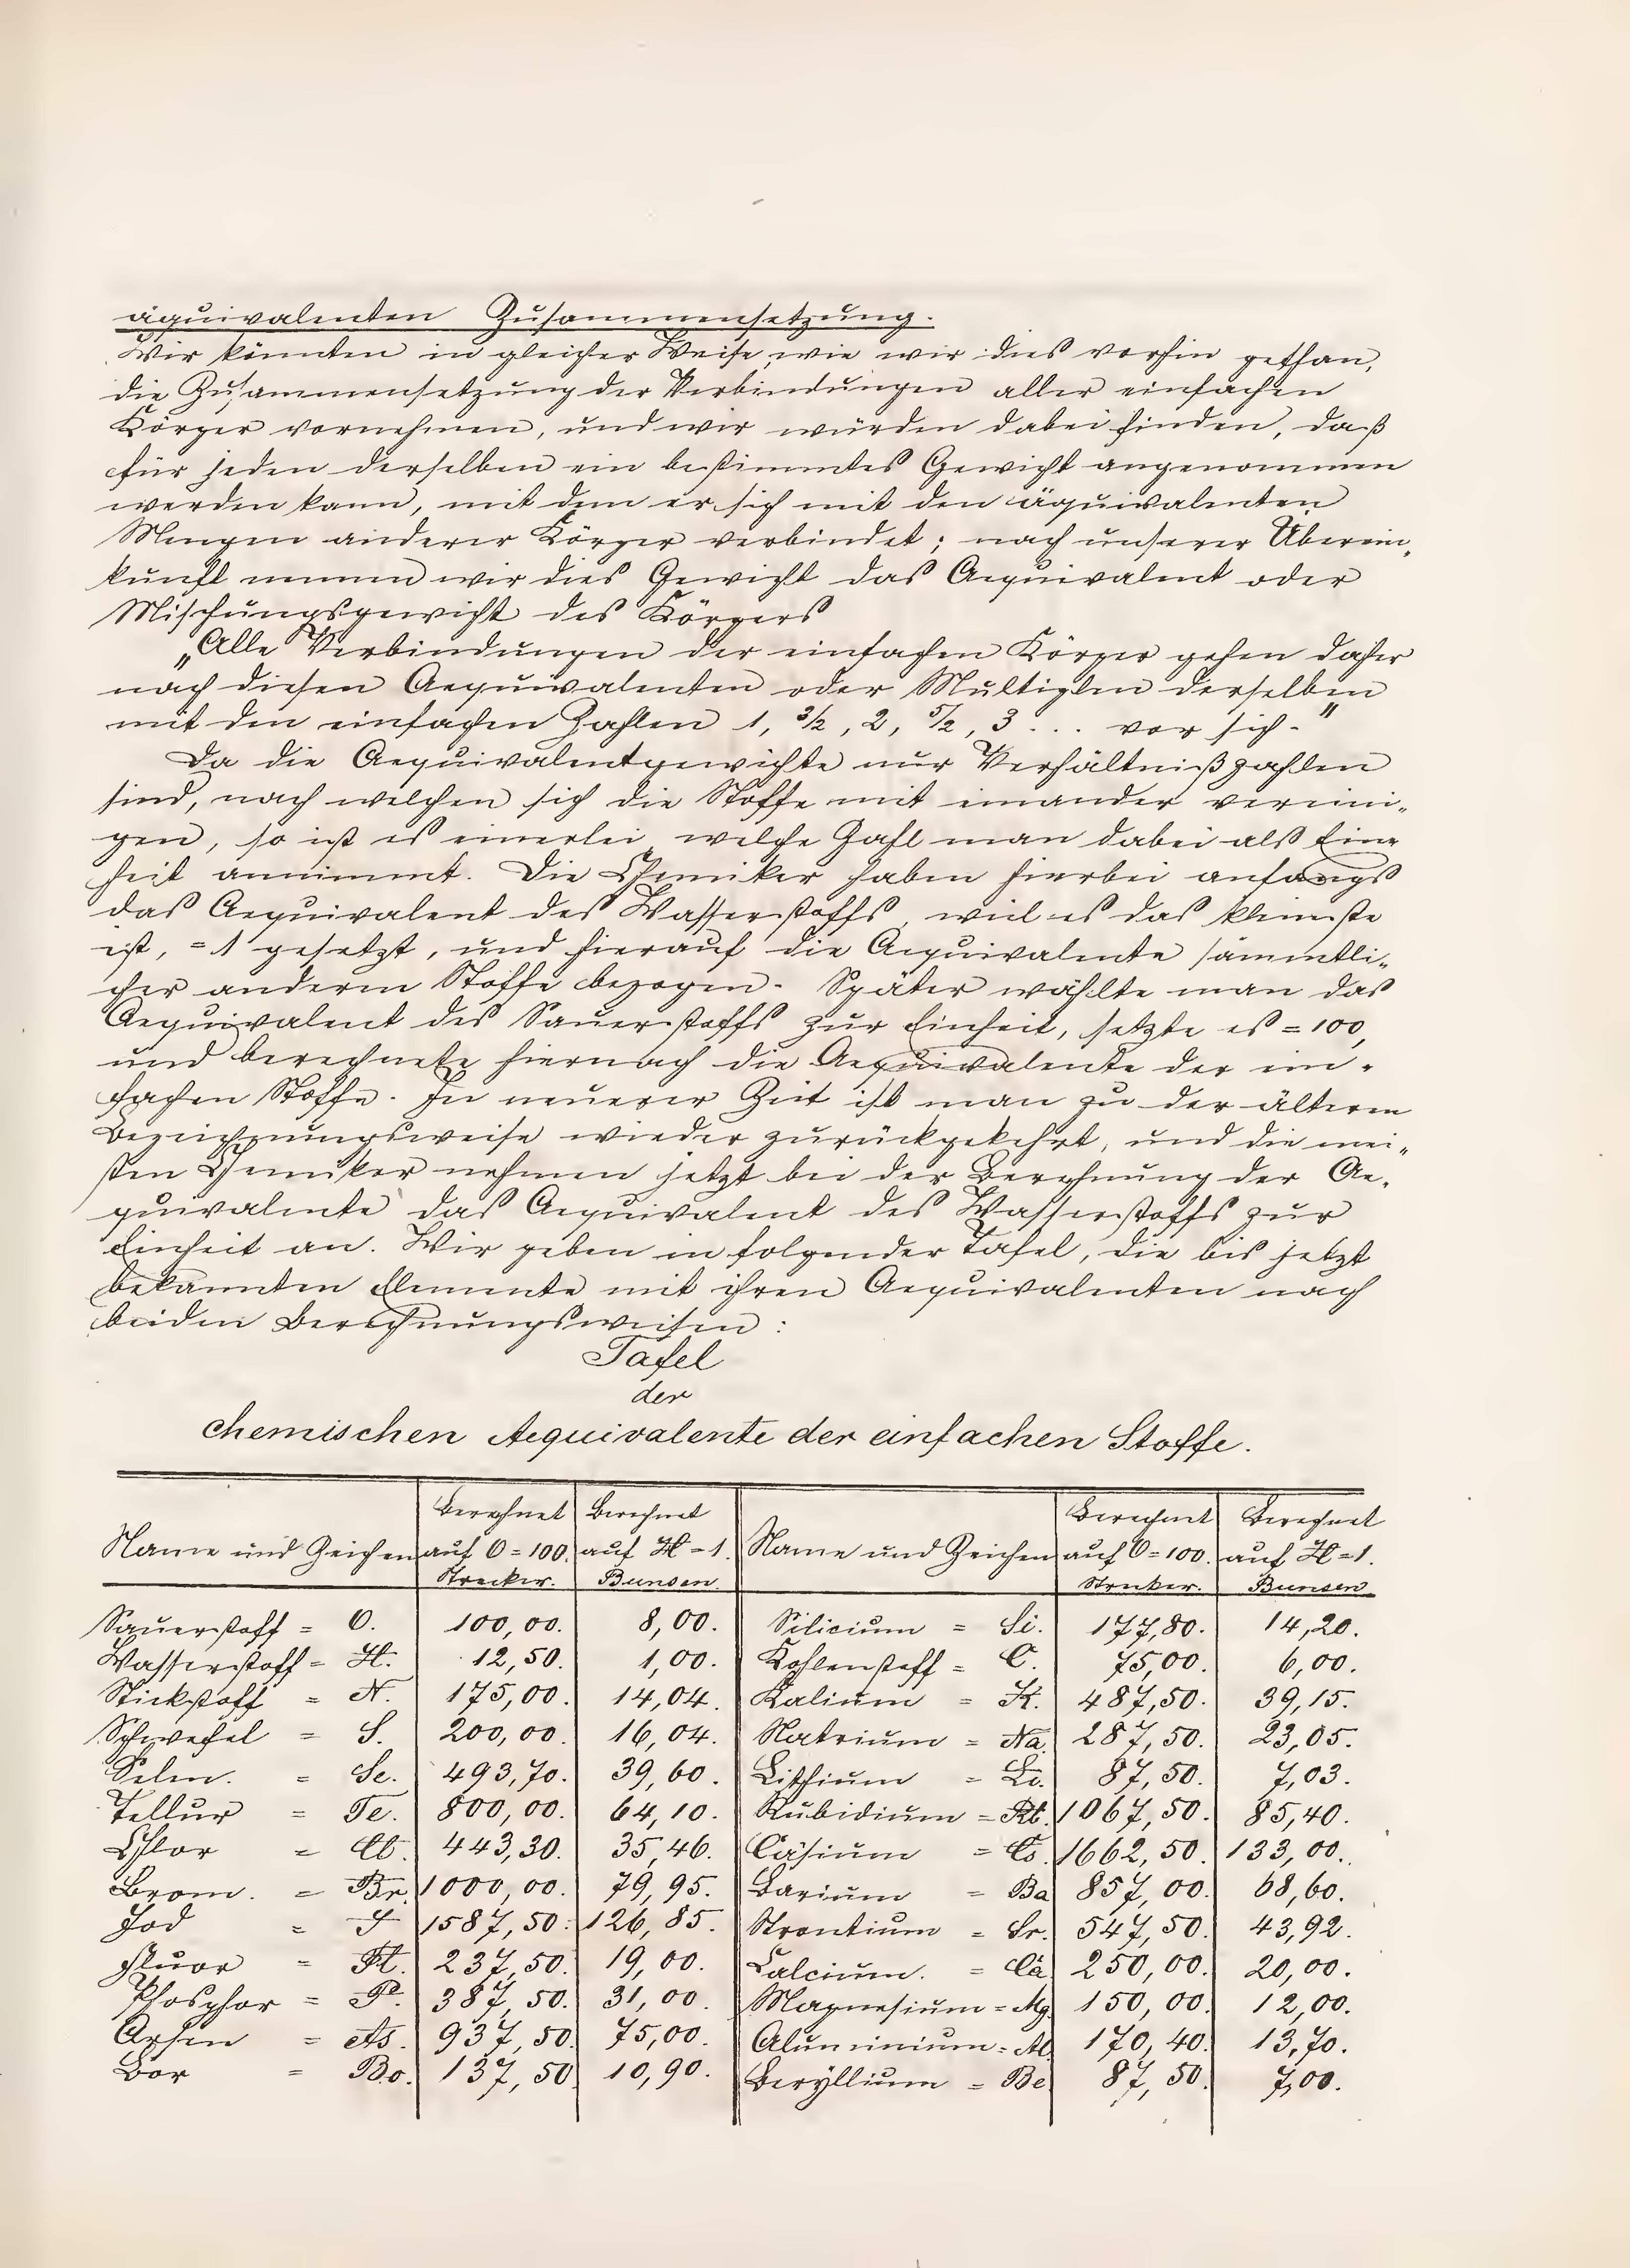 äquivalenten Zusammensetzung.
Wir könnten in gleicher Weise, wie wir dies vorhin gethan,
die Zusammensetzung der Verbindungen aller einfachen
Körper vornehmen, und wir würden dabei finden, daß
für jeden derselben ein bestimmtes Gewicht angenommen
werden kann, mit dem er sich mit den äquivalenten
Mengen anderer Körper verbindet; nach unserer Überein-
kunft nennen wir dies Gewicht das Aequivalent oder
Mischungsgewicht des Körpers
„Alle Verbindungen der einfachen Körper gehen daher
nach diesen Aequivalenten oder Multiplen derselben
mit den einfachen Zahlen 1, 3/2, 2, 5/2, 3 ... vor sich."
Da die Aequivalentgewichte nur Verhältnißzahlen
sind, nach welchen sich die Stoffe mit einander vereini-
gen, so ist es einerlei welche Zahl man dabei als Ein-
heit annimmt. Die Chemiker haben hierbei anfangs
das Aequivalent des Wasserstoffs, weil es das kleinste
ist, = 1 gesetzt, und hierauf die Aequivalente sämmtli-
cher anderen Stoffe bezogen. Später wählte man das
Aequivalent des Sauerstoffs zur Einheit, setzte es = 100,
und berechnete hiernach die Aequivalente der ein-
fachen Stoffe. In neuerer Zeit ist man zu der älteren
Bezeichnungsweise wieder zurückgekehrt, und die mei-
sten Chemiker nehmen jetzt bei der Berechnung der Ae-
quivalente das Aequivalent des Wasserstoffs zur
Einheit an. Wir geben in folgender Tafel, die bis jetzt
bekannten Elemente mit ihren Aequivalenten nach
beiden Berechnungsweisen:
Tafel
der
chemischen Aequivalente der einfachen Stoffe.
Berechnet Berechnet Berechnet Berechnet
Name und Zeichen auf O=100. auf H=1. Name und Zeichen auf O=100. auf H=1.
Strecker. Bunsen. Strecker. Bunsen
Sauerstoff = O. 100,00. 8,00. Silicium = Si. 177,80. 14,20.
Wasserstoff = H. 12,50. 1,00. Kohlenstoff = C. 75,00. 6,00.
Stickstoff = N. 175,00. 14,04. Kalium = K. 487,50. 39,15.
Schwefel = S. 200,00. 16,04. Natrium = Na. 287,50. 23,05.
Selen. = Se. 493,70. 39,60. Lithium = Li. 87,50. 7,03.
Tellur = Te. 800,00. 64,10. Rubidium = Rb. 1067,50. 85,40.
Chlor = Cl. 443,30. 35,46. Cäsium = Cs. 1662,50. 133,00.
Brom. = Br. 1000,00. 79,95. Barium = Ba 857,00. 68,60.
Jod = J 1587,50. 126,85. Strontium = Sr. 547,50. 43,92.
Fluor = Fl. 237,50. 19,00. Calcium. = Ca 250,00. 20,00.
Phosphor = P. 387,50. 31,00. Magnesium = Mg. 150,00. 12,00.
Arsen = As. 937,50 75,00. Aluminium = Al. 170,40. 13,70.
Bor = Bo. 137,50 10,90. Beryllium = Be 87,50. 7,00.